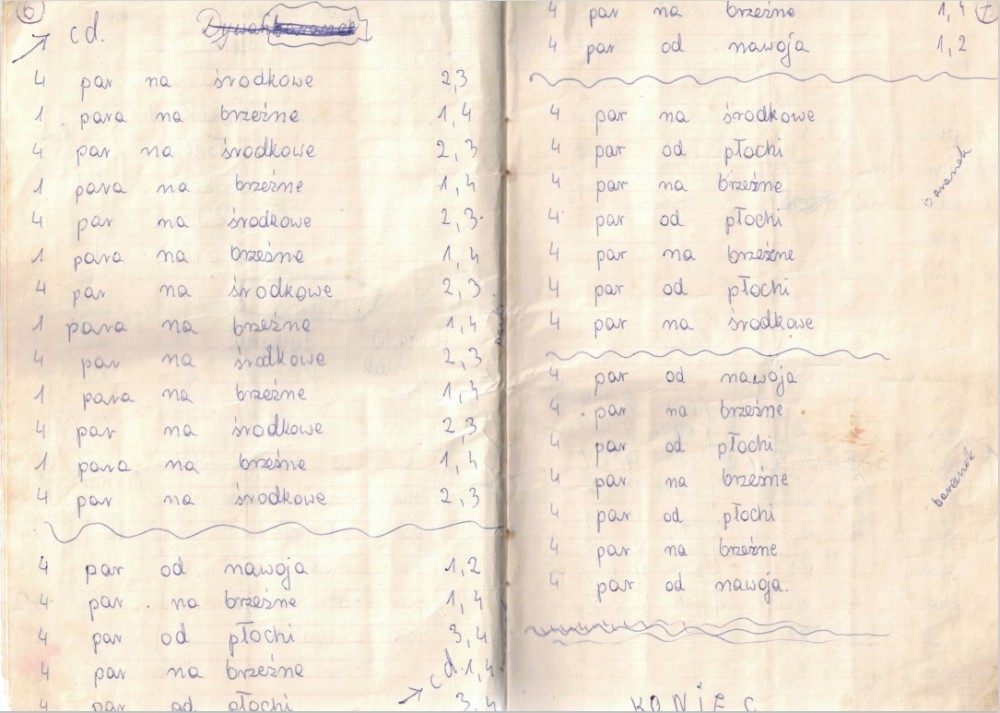 6
cd. Dywan
4 par na środkowe 2,3
1 para na brzeżne 1,4
4 par na środkowe 2,3
1 para na brzeżne 1,4
4 par na środkowe 2,3.
1 para na brzeżne 1,4
4 par na środkowe 2,3
1 para na brzeżne 1,4
4 par na środkowe 2,3
1 para na brzeżne 1,4
4 par na środkowe 2,3
1 para na brzeżne 1,4
4 par na środkowe 2,3
4 par od nawoja 1,2
4 par na brzeżne 1,4
4 par od płochi 3,4
4 par na brzeżne 1,4
cd.
4 par od płochi 3,4
4 par na brzeżne 1,4
4 par od nawoja 1,2
4 par na środkowe
4 par od płochi
4 par na brzeżne
4 par od płochi
4 par na brzeżne
4 par od płochi
4 par na środkowe
baranek
4 par od nawoja
4 par na brzeżne
4 par od płochi
4 par na brzeżne
4 par od płochi
4 par na brzeżne
4 par od nawoja.
baranek
KONIEC